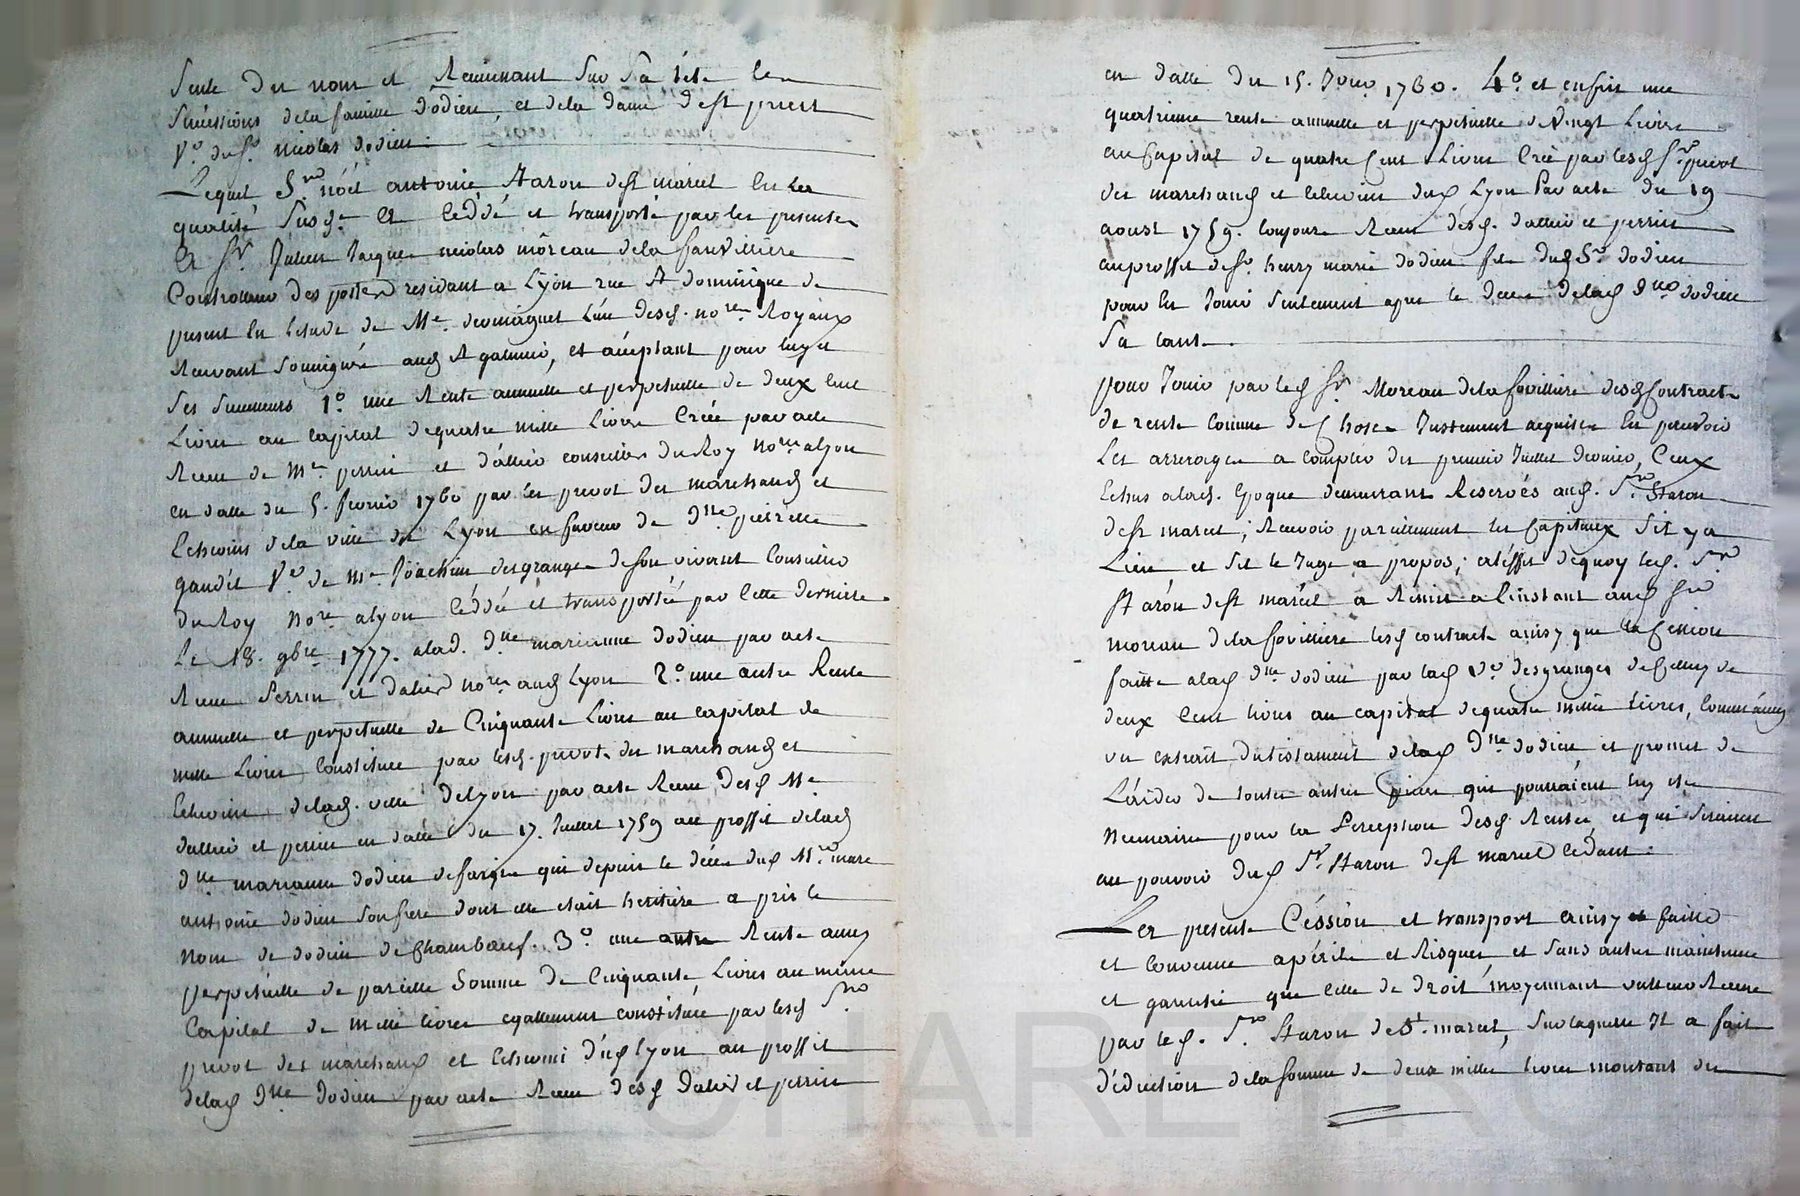 Seule du nom et Reunissant sur sa tête les
successions de la famille dodieu, et de la dame de st priest
Ve. du Sr. nicolas dodieu.
Lequel Sr. nöel antoine Staron de st marcel en les
qualité susd. a ceddé et transporté par les presentes
a Sr. Julien Jacques nicolas môreau de la fauvilliere
Controlleur des postes residant a Lyön rue St dominique
present en l'etude de Me. l'un desd. nores Royaux
Recevant soussigné aud St galmier, et acceptant pour luy et
ses successeurs 1o. une Rente annuelle et perpetuelle de deux cent
Livres au capital de quatre mille Livres Créée par acte
Receu de Me. perrin et d'allier conseillers du Roy nores a lyon
en datte du 5. fevrier 1760 par les prevot des marchands et
Echevins de la ville de Lyon en faveur de dlle pierrette
gaudét Ve. de Me. Jöachim desgranges de son vivant Conseiller
du Roy nore a lyon céddée et transportée par cette derniere
Le 18. 9bre 1777. alad. dlle marianne dodieu par acte
Receu Perrin et dalier nores aud Lyon 2o une autre Rente
annuelle et perpetuelle de Cinquante Livres au capital de
mille Livres Constituée par lesd. prevot des marchands et
Echevins de lad. ville de Lyon par acte Receu desd Me.
dallier et perrin en datte du 17. Juillet 1759 au proffit de lad
dlle marianne dodieu qui depuis le décès dud Mre marc
antoine dodieu son frere dont elle etait heritiere a pris le
nom de dodieu de Chambœuf. 3o une autre Rente annu
perpétuelle de pareille Somme de Cinquante Livres au même
Capital de mille livres egallement constituée par lesd Srs
prevot des marchands et Echevins dud Lyon au proffit
de lad dlle dodieu par acte Receu desd dalier et perrin
en datte du 15. 1760. 4o. et enfin une
quatrieme rente annuelle et perpetuelle de Vingt Livres
au Capital de quatre Cent Livres Créé par lesd Srs prevot
des marchands et Echevins dud Lyon Par acte du 19
aoust 1759. toujours Receu desd. dallier et perrin
au proffit de Sr. henry marie dodieu fils dud Sr. dodieu
pour en Jouir seulement apres le deces de lad dlle dodieu
Sa tante.
pour Jouir par led Sr. Moreau de la fovilliere desd Contracts
de rente comme de Chose Justement acquise En percevoir
Les arrerages a compter du premier Juillet dernier, Ceux
Echus a lad. Epoque demeurants Reservés aud. Sr. Staron
de st marcel; Recevoir pareillement les Capitaux S'il y a
Lieu et S'il le Juge a propos; a l'éffet de quoy led. Sr.
Staròn de st marcel a Remis a l'instant aud Sr
moreau de la fovilliere lesd contracts ainsy que la Cession
faitte a lad dlle dodieu par lad Ve desgranges de Celluy de
deux Cent livres au capital de quatre mille livres, comm' aussy
un extrait du testament de lad dlle dodieu et promet de
L'aider de toutes autres pieces qui pourraient luy etre
necessaires pour la Perception desd. Rentes et qui seraient
au pouvoir dud Sr. Staron de st marcel Cedant.
Les presente Céssion et transport ainsy faitte
et Convenue a périls et Risques et sans autre maintenue
et garantie que celle de droit moyennant valleur Receue
par led. Sr. Staron de St. marcel, sur laquelle Il a fait
déduction de la somme de deux mille livres montant du